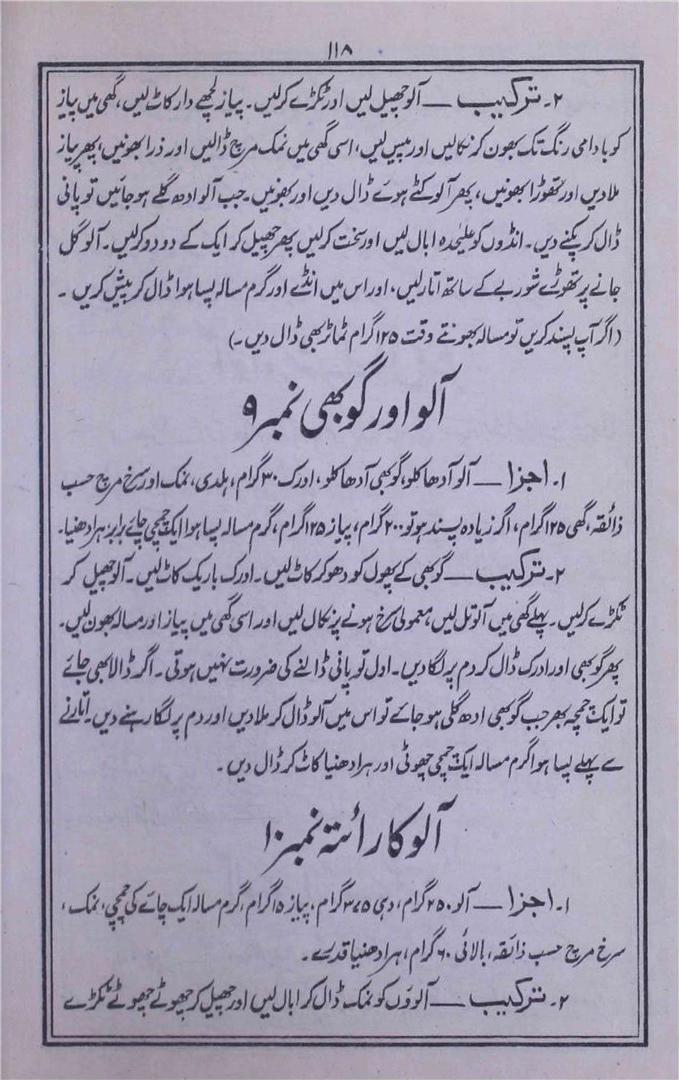 ۱۱۸
۲۔ ترکیب ــــ آلو چھیل لیں اور ٹکڑے کرلیں۔ پیاز لچھے دار کاٹ لیں، گھی میں پیاز
کو بادامی رنگ تک بھون کر نکالیں اور پیس لیں، اسی گھی میں نمک مرچ ڈالیں اور ذرا بھونیں، پھر پیاز
ملا دیں اور تھوڑا بھونیں، پھر آلو کٹے ہوئے ڈال دیں اور بھونیں۔ جب آلو ادھ گلے ہو جائیں تو پانی
ڈال کر پکنے دیں۔ انڈوں کو علیحدہ ابال لیں اور سخت کرلیں پھر چھیل کر ایک کے دو دو کرلیں۔ آلو گل
جانے پر تھوڑے شوربے کے ساتھ اتار لیں، اور اس میں انڈے اور گرم مسالہ پسا ہوا ڈال کر پیش کریں۔
(اگر آپ پسند کریں تو مسالہ بھونتے وقت ۱۲۵ گرام ٹماٹر بھی ڈال دیں۔)
آلو اور گوبھی نمبر ۹
۱۔ اجزا ــــ آلو آدھا کلو، گوبھی آدھا کلو، ادرک ۳۰ گرام، ہلدی، نمک اور سرخ مرچ حسب
ذائقہ، گھی ۱۲۵ گرام، اگر زیادہ پسند ہو تو ۲۰۰ گرام، پیاز ۱۲۵ گرام، گرم مسالہ پسا ہوا ایک چمچی چائے برابر ہرا دھنیا۔
۲۔ ترکیب ــــ گوبھی کے پھول کو دھو کر کاٹ لیں۔ ادرک باریک کاٹ لیں۔ آلو چھیل کر
ٹکڑے کرلیں۔ پہلے گھی میں آلو تل لیں معمولی سرخ ہونے پر نکال لیں اور اسی گھی میں پیاز اور مسالہ بھون لیں۔
پھر گوبھی اور ادرک ڈال کر دم پر لگا دیں۔ اول تو پانی ڈالنے کی ضرورت نہیں ہوتی۔ اگر ڈالا بھی جائے
تو ایک چمچہ بھر جب گوبھی ادھ گلی ہو جائے تو اس میں آلو ڈال کر ملا دیں اور دم پر لگا رہنے دیں۔ اتارنے
سے پہلے پسا ہوا گرم مسالہ ایک چمچی چھوٹی اور ہرا دھنیا کاٹ کر ڈال دیں۔
آلو کا رائتہ نمبر ۱۰
۱۔ اجزا ــــ آلو ۲۵۰ گرام، دہی ۳۷۵ گرام، پیاز ۱۵ گرام، گرم مسالہ ایک چائے کی چمچی، نمک،
سرخ مرچ حسب ذائقہ، بالائی ۶۰ گرام، ہرا دھنیا قدرے۔
۲۔ ترکیب ــــ آلوؤں کو نمک ڈال کر ابال لیں اور چھیل کر چھوٹے چھوٹے ٹکڑے